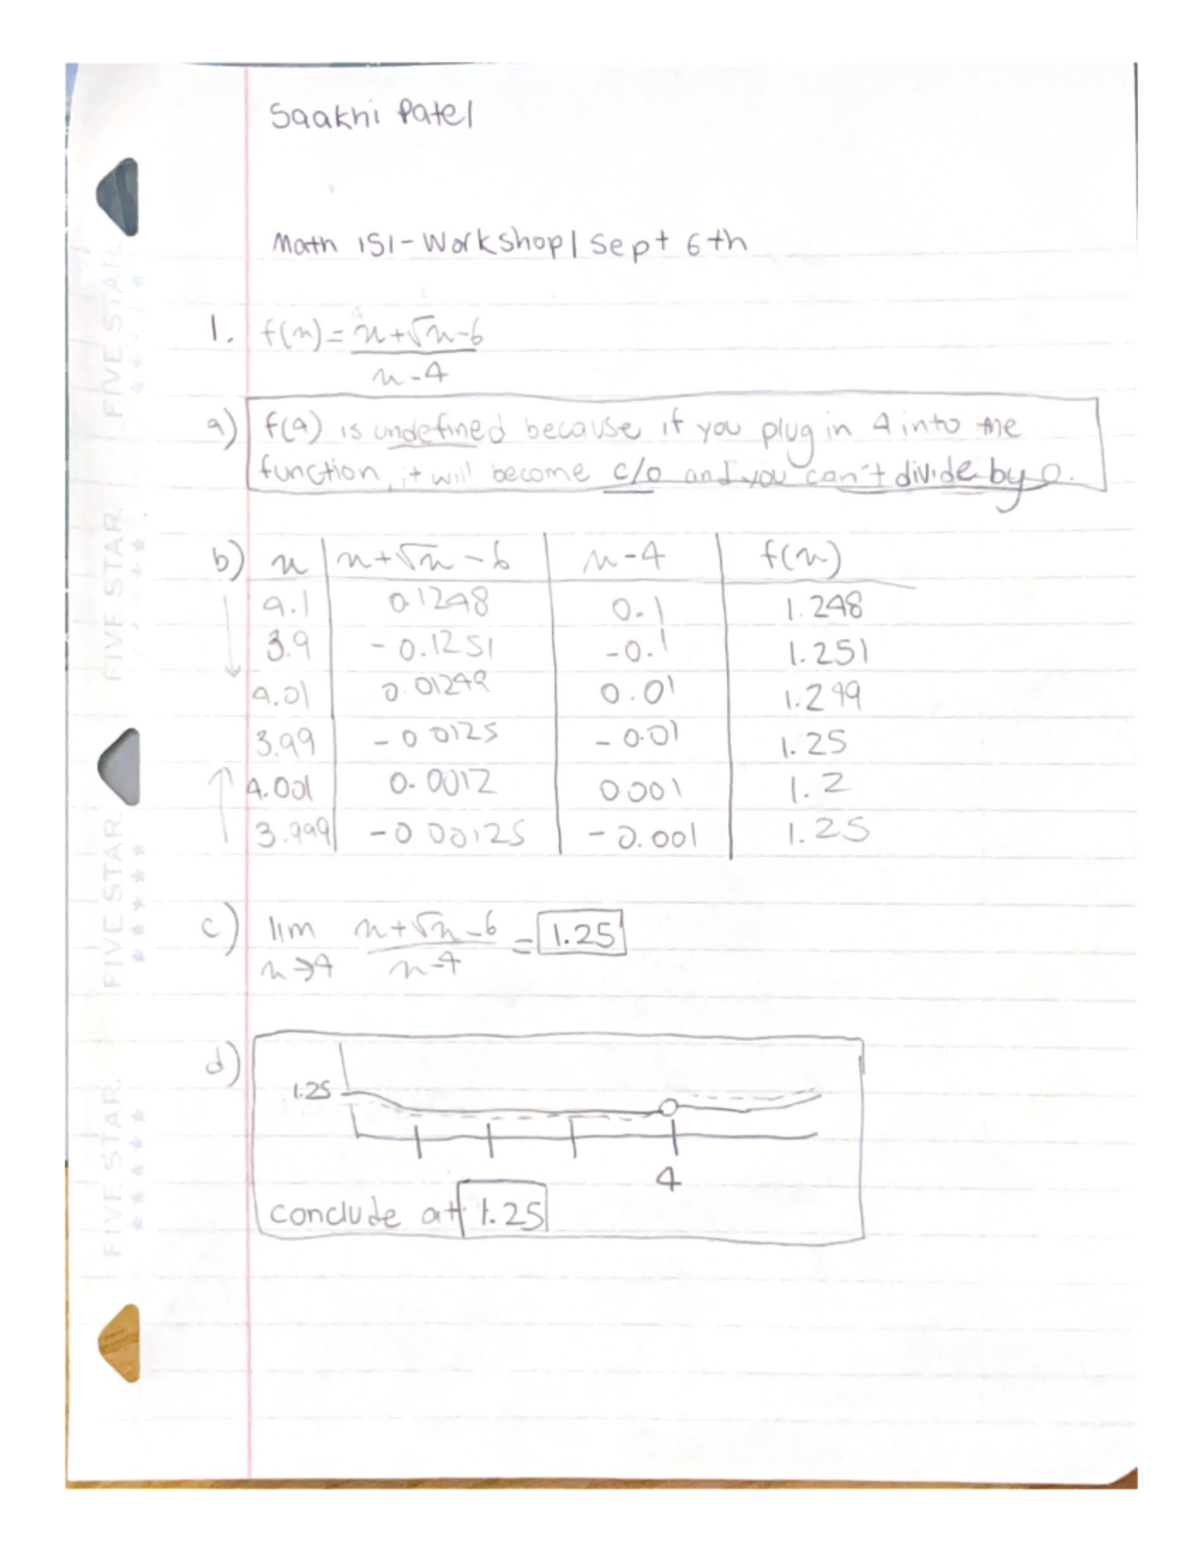 Saakhi Patel
Math 151-Workshop | Sept 6th
1. f(x) = x+√x-6
x-4
a) f(4) is undefined because if you plug in 4 into the
function, it will become c/0 and you can't divide by 0.
b) x | x+√x-6 | x-4 | f(x)
4.1 | 0.1248 | 0.1 | 1.248
3.9 | -0.1251 | -0.1 | 1.251
4.01 | 0.01249 | 0.01 | 1.249
3.99 | -0.0125 | -0.01 | 1.25
4.001 | 0.0012 | 0.001 | 1.2
3.999 | -0.00125 | -0.001 | 1.25
c) lim x+√x-6 = 1.25
x→4 x-4
d)
1.25
4
conclude at 1.25
FIVE STAR.
FIVE STAR.
FIVE STAR.
FIVE STAR.